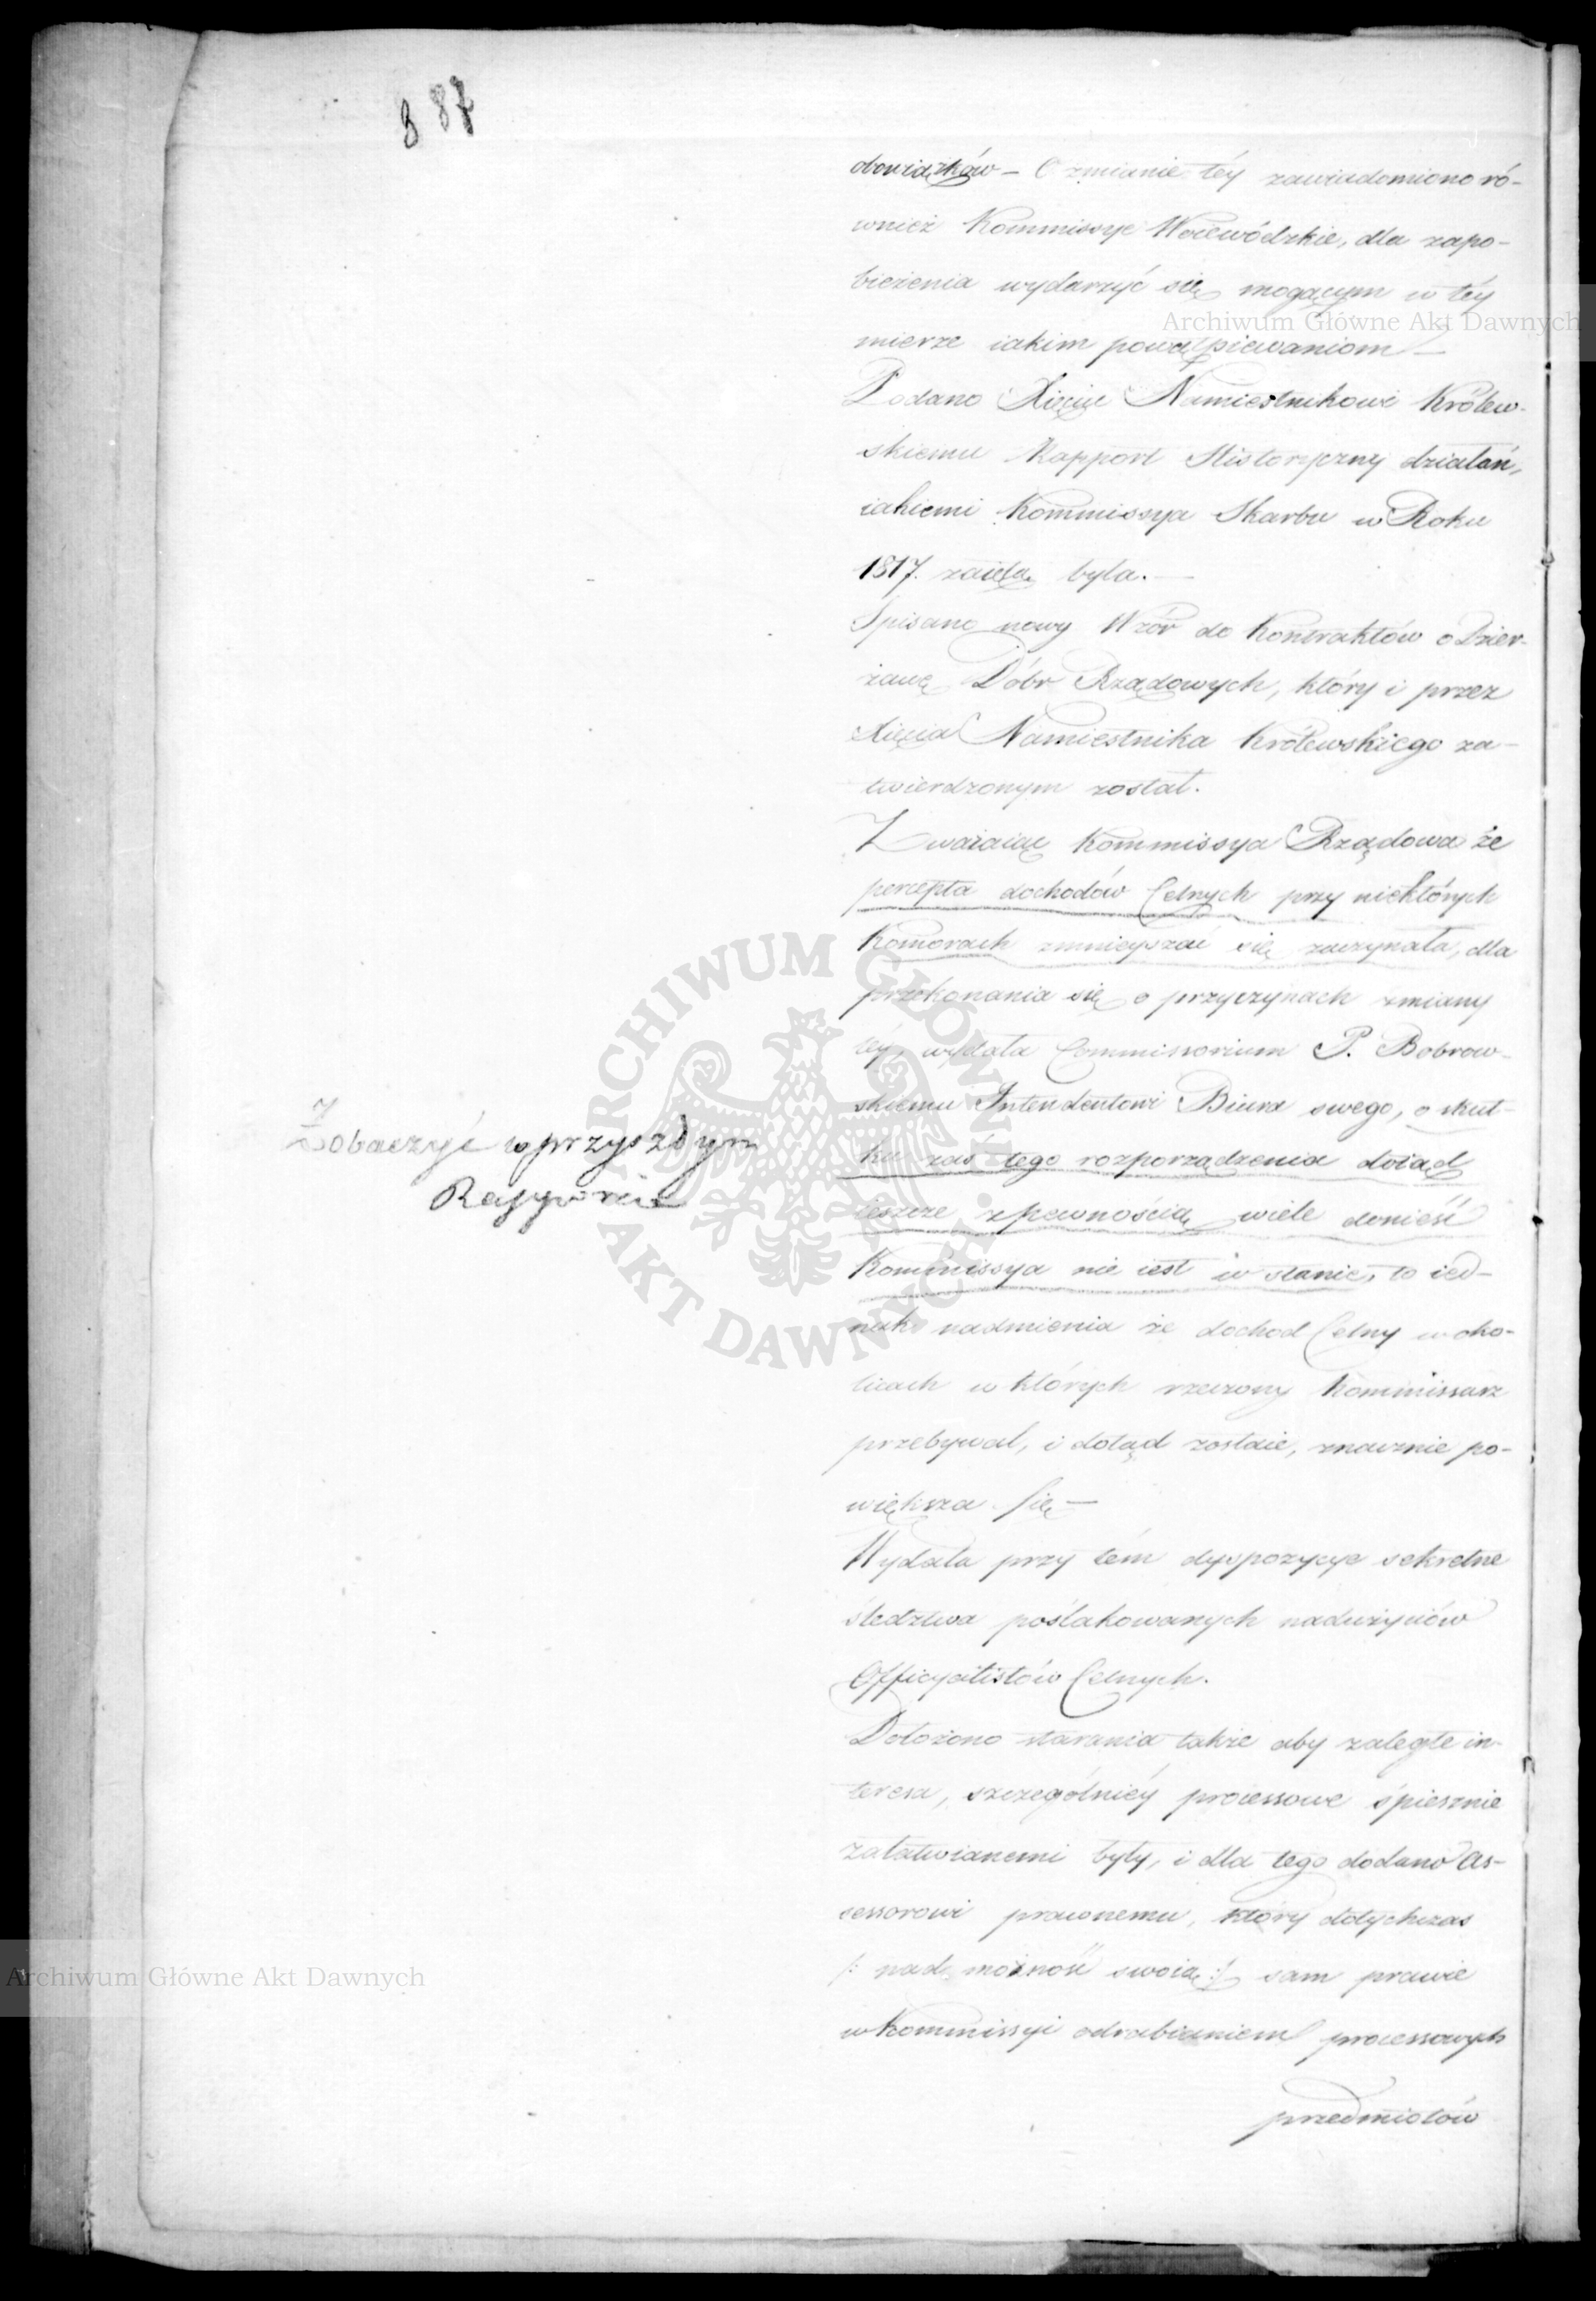 887
obowiązków – O zmianie téy zawiadomiono ró-
wnież Kommissye Woiewódzkie, dla zapo-
bieżenia wydarzyć się mogącym w téy
mierze iakim powątpiewaniom –
Podano Xięciu Namiestnikowi Królew-
skiemu Rapport Historyczny działań,
iakiemi Kommissya Skarbu w Roku
1817. zaiętą była. –
Spisano nowy Wzór do Kontraktów o Dzier-
żawę Dóbr Rządowych, który i przez
Xięcia Namiestnika Królewskiego za-
twierdzonym został.
Zważaiąc Kommissya Rządowa że
percepta dochodów Celnych przy niektórych
Komorach zmnieyszać się zaczynała, dla
przekonania się o przyczynach zmiany
téy, wydała Commissorium P. Bobrow-
skiemu Intendentowi Biura swego, o skut-
ku zaś tego rozporządzenia dotąd
ieszcze z pewnością wiele donieść
Kommissya nie iest w stanie, to ied-
nak nadmienia że dochod Celny w oko-
licach w których rzeczony Kommissarz
przebywał, i dotąd zostaie, znacznie po-
większa się –
Wydała przy tém dyspozycye sekretne
śledztwa poślakowanych nadużyciów
Officyalistów Celnych.
Dołożono starania także aby zaległe in-
teresa, szczególniéy processowe śpiesznie
załatwianemi były, i dla tego dodano As-
sessorowi prawnemu, który dotychczas
/: nad możność swoią :/ sam prawie
w Kommissyi odrabianiem processowych
przedmiotów
Zobaczyć w przyszłym
Rapporcie
Archiwum Główne Akt Dawnych
ARCHIWUM GŁÓWNE AKT DAWNYCH
Archiwum Główne Akt Dawnych